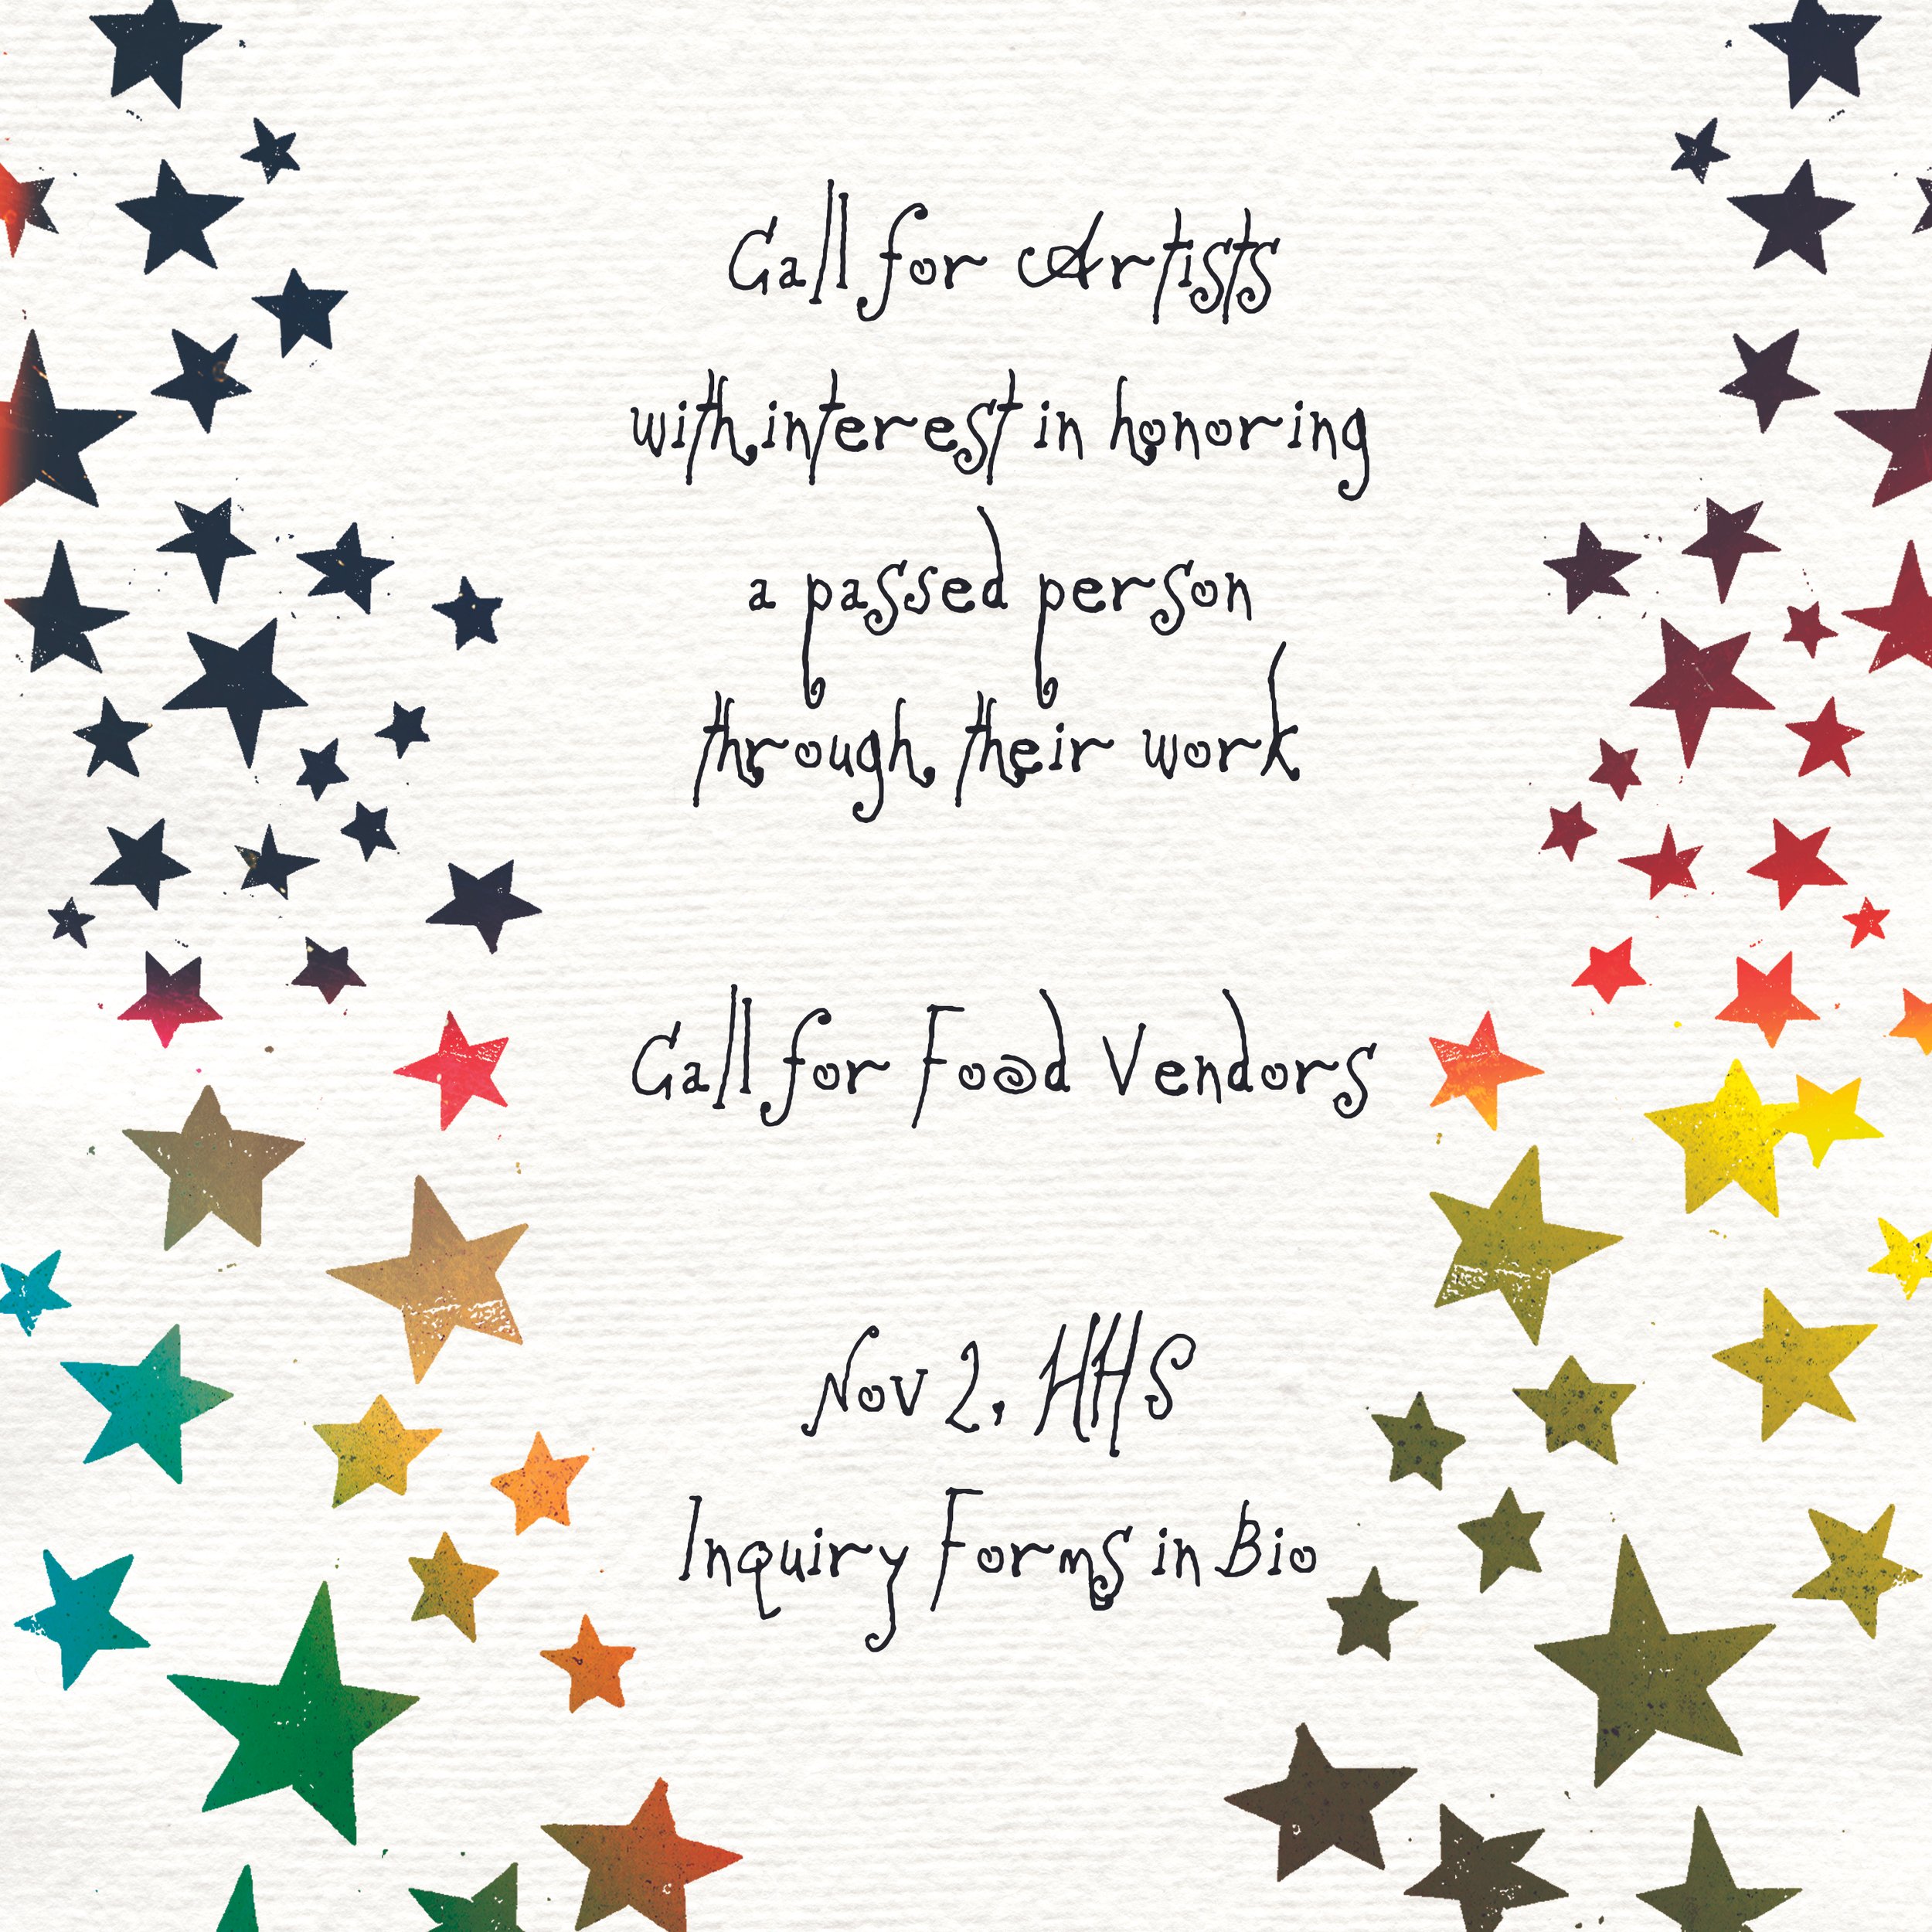 Call for Artists
with interest in honoring
a passed person
through their work
Call for Food Vendors
Nov 2, HHS
Inquiry Forms in Bio